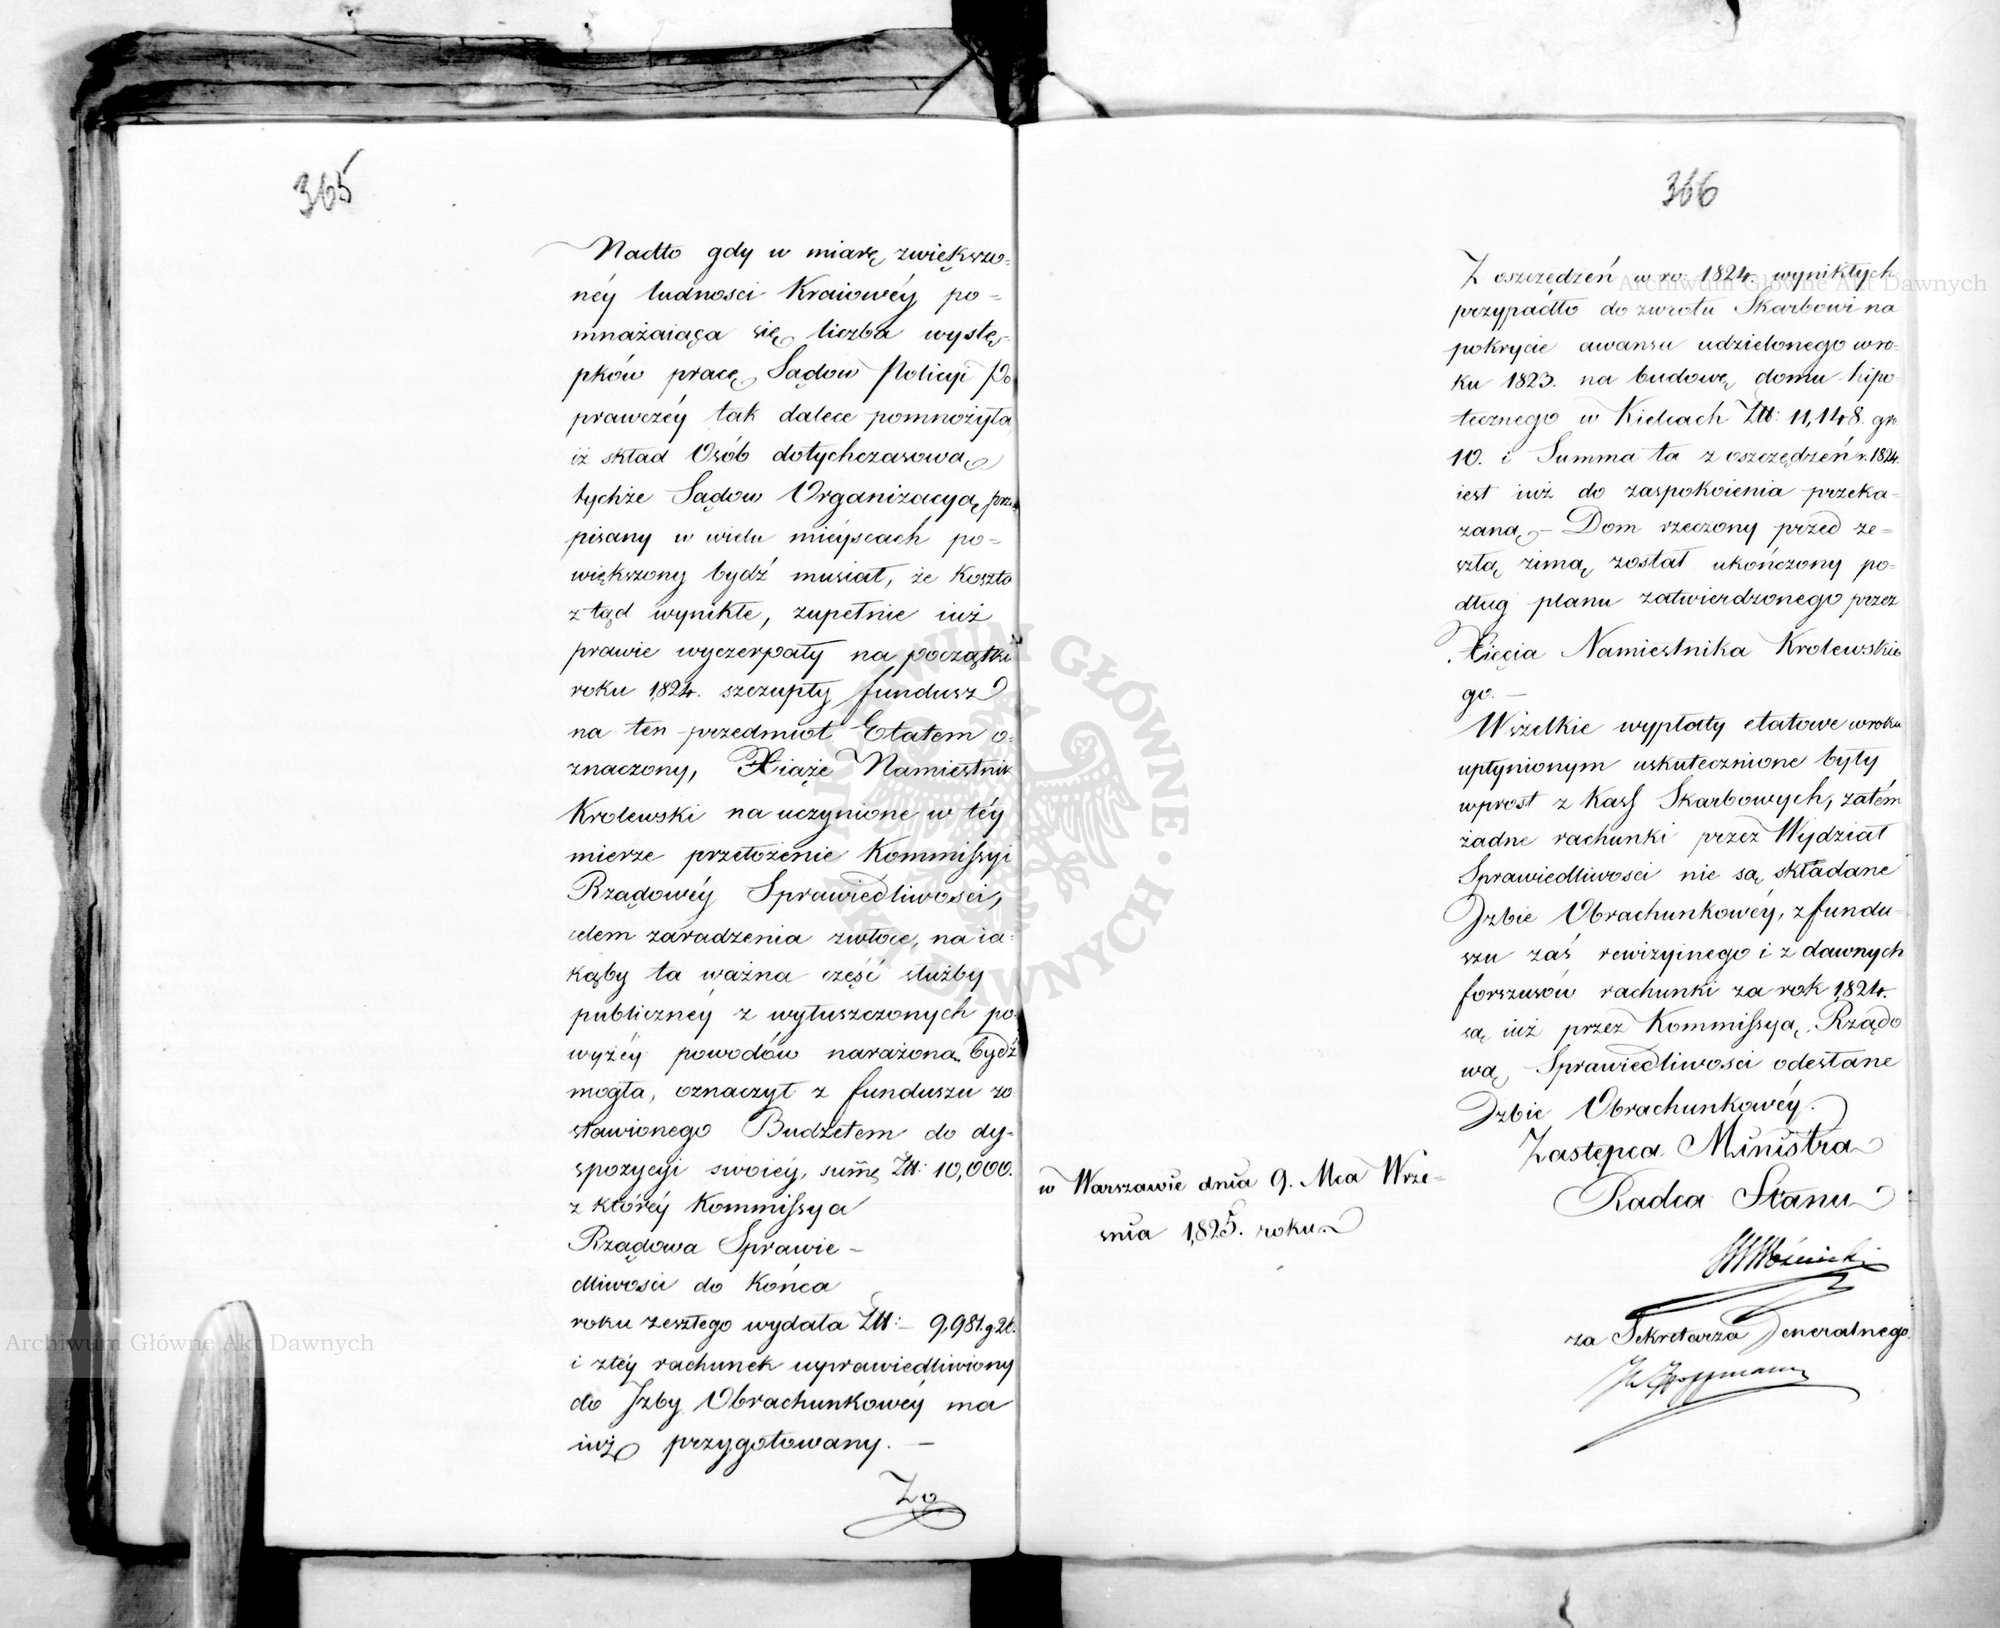 365
Nadto gdy w miarę zwiększo-
néy ludnosci Kraiowéy po-
mnażaiąca się liczba wystę-
pków pracę Sądow Policyi Po
prawczéy tak dalece pomnożyła,
iż skład Osób dotychczasową
tychże Sądow Organizacyą prze
pisany w wielu mieyscach po-
większony bydź musiał, że koszta
ztąd wynikłe, zupełnie iuż
prawie wyczerpały na początku
roku 1824. szczupły fundusz
na ten przedmiot Etatem o-
znaczony, Xiąże Namiestnik
Krolewski na uczynione w téy
mierze przełożenie Kommissyi
Rządowéy Sprawiedliwosci,
celem zaradzenia zwłoce, na ia-
kąby ta ważna część służby
publicznéy z wyłuszczonych po
wyżéy powodów narażona bydź
mogła, oznaczył z funduszu zo
stawionego Budżetem do dy-
spozycyi swoiéy, summę Złł: 10,000.
z któréy Kommissya
Rządowa Sprawie-
dliwosci do końca
roku zeszłego wydała Złł:- 9,981. g 26.
i ztéy rachunek usprawiedliwiony
do Izby Obrachunkowéy ma
iuż przygotowany. -
Zo
366
Z oszczędzeń w ro. 1824. wynikłych
przypadło do zwrotu Skarbowi na
pokrycie awansu udzielonego wro-
ku 1823. na budowę domu hipo-
tecznego w Kielcach Złł: 11,148. gr.
10. i Summa ta z oszczędzeń r. 1824.
iest iuż do zaspokoienia przeka-
zaną - Dom rzeczony przed ze-
szłą zimą został ukończony po-
dług planu zatwierdzonego przez
Xięcia Namiestnika Krolewskie
go. -
Wszelkie wypłaty etatowe wroku
upłynionym uskutecznione były
wprost z Kass Skarbowych, zatém
żadne rachunki przez Wydział
Sprawiedliwosci nie są składane
Izbie Obrachunkowéy, z fundu-
szu zaś rewizyinego i z dawnych
forszusów rachunki za rok 1824.
są iuż przez Kommissyą Rządo
wą Sprawiedliwosci odesłane
Izbie Obrachunkowéy.
Zastępca Ministra
Radca Stanu
w Warszawie dnia 9. Mca Wrze-
snia 1825. roku
Woźnicki
za Sekretarza Jeneralnego
Hoffmann
Archiwum Główne Akt Dawnych
Archiwum Główne Akt Dawnych
ARCHIWUM GŁÓWNE AKT DAWNYCH